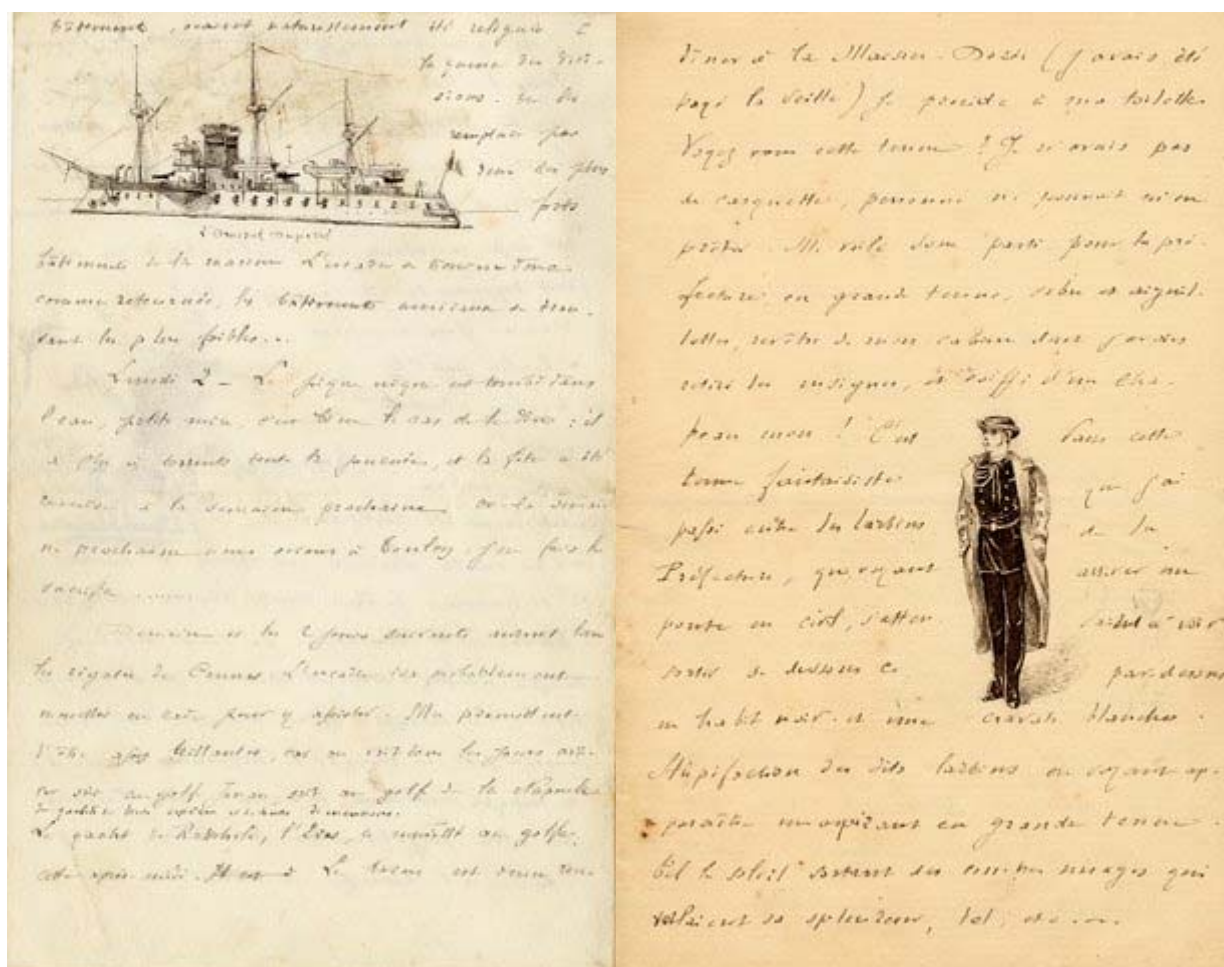 bâtiment, avaient naturellement été relégués à
la queue des divi-
sions. En
remplacés par
deux des plus
forts
L'Amiral
bâtiments de la marine. L'escadre a
comme retournée, les bâtiments anciens se trou-
vant les plus faibles...
Lundi 2 - Le pique nique est tombé dans
l'eau, petite mère, c'est bien le cas de le dire : il
a plu à torrents toute la journée, et la fête a été
remise à la semaine prochaine or la semai
ne prochaine nous serons à Toulon. J'en fais le
sacrifice
Demain et les 2 jours suivants auront lieu
les régates de Cannes. L'escadre ira probablement
mouiller en rade pour y assister. Elles promettent
d'être assez brillantes, car on voit tous les jours arri-
ver soit au golf Juan soit au golf de la
Le yacht de Rothschild, l'Eros, a mouillé au golfe,
cette après midi. Le
dîner à la Maison Dorée (j'avais été
payé la veille) je procède à ma toilette
Voyez vous cette tenue ! Je n'avais pas
de casquette, personne ne pouvait m'en
prêter. Me voilà donc parti pour la pré-
fecture, en grande tenue, sabre et aiguil-
lettes, revêtu de mon caban dont j'avais
retiré les insignes, et coiffé d'un cha-
peau mou ! C'est dans cette
tenue fantaisiste que j'ai
passé entre les larbins de la
Préfecture, qui, voyant arriver un
en civil, s'attendait à voir
sortir de dessous ce pardessus
un habit noir et une cravate blanche.
Stupéfaction des dits larbins en voyant ap-
paraître un aspirant en grande tenue.
Tel le soleil sortant des nuages qui
voilaient sa splendeur, tel, etc....